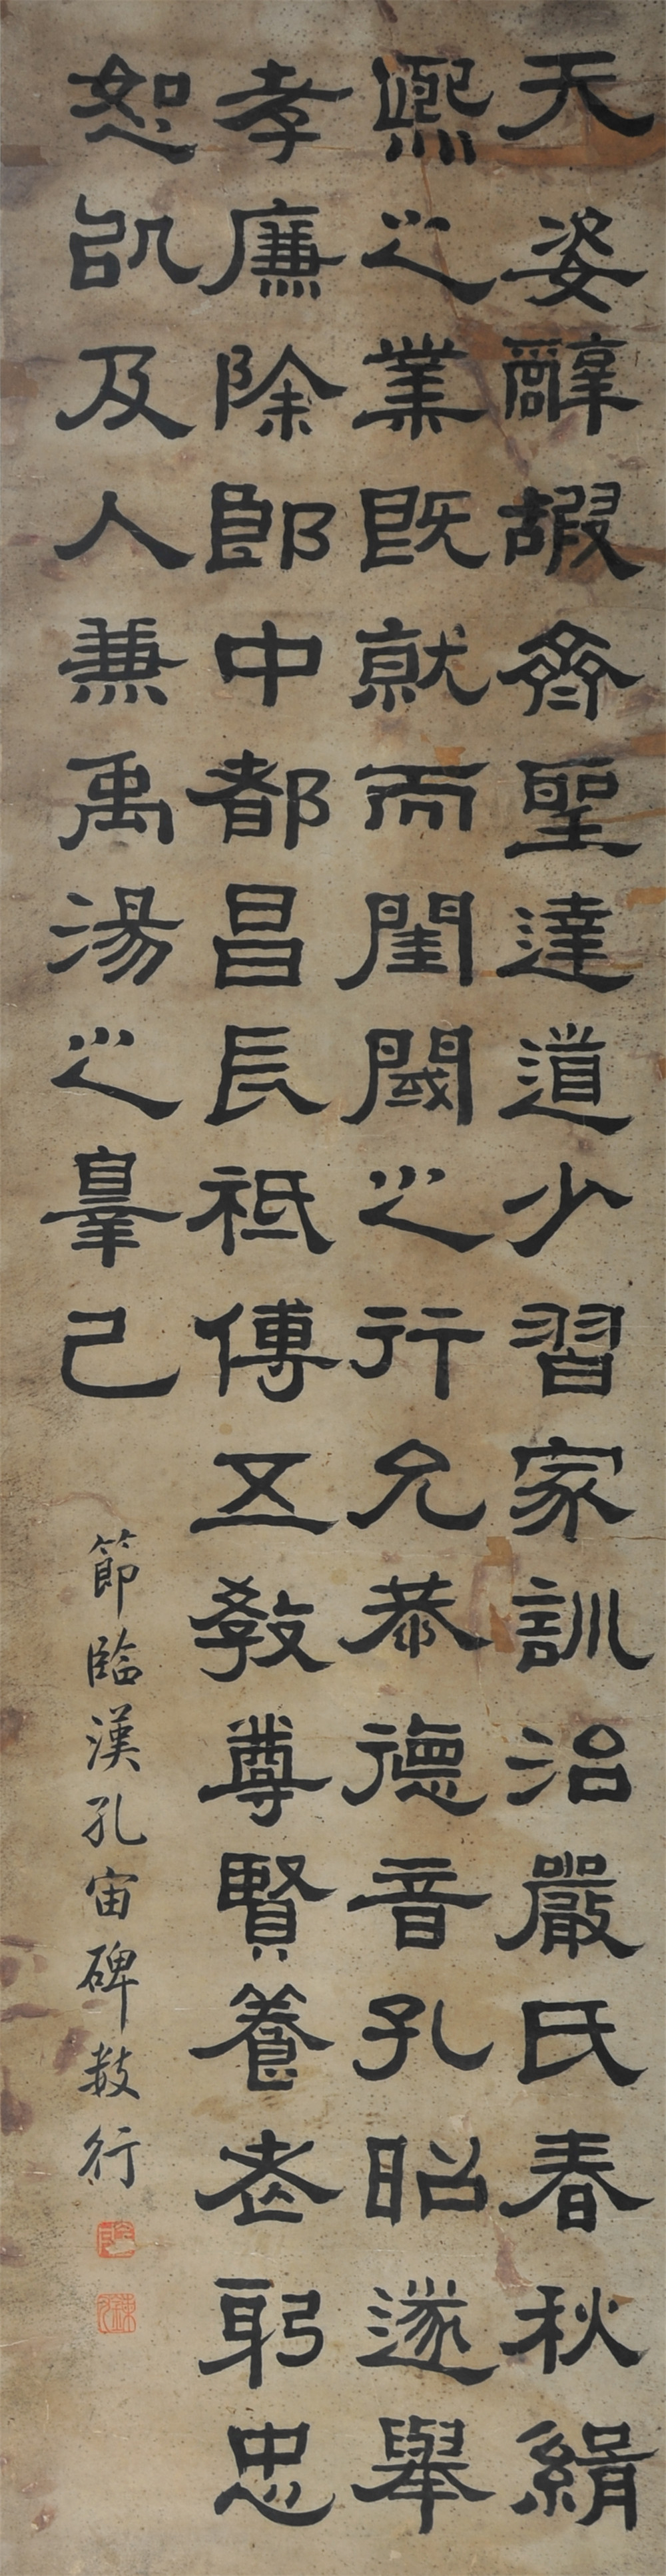 天姿醇嘏齊聖達道少習家訓治嚴氏春秋緝
熙之業既就而閨閾之行允恭德音孔昭遂舉
孝廉除郎中都昌長祗傅五教尊賢養老躬忠
恕以及人兼禹湯之辠己
節臨漢孔宙碑數行